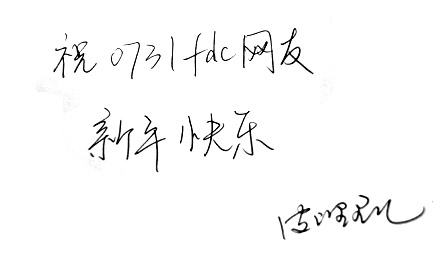 祝0731fdc网友
新年快乐